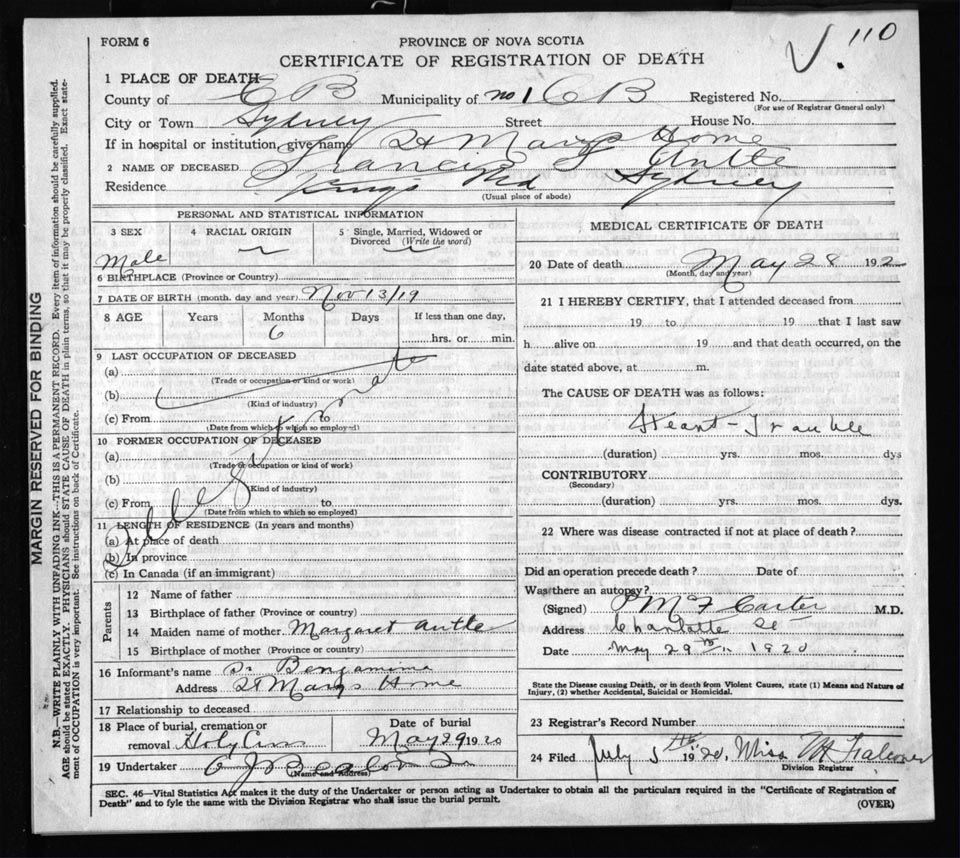 FORM 6
PROVINCE OF NOVA SCOTIA
CERTIFICATE OF REGISTRATION OF DEATH
V. 110
1 PLACE OF DEATH
County of C B Municipality of no 1 C B Registered No.
(For use of Registrar General only)
City or Town Sydney Street House No.
If in hospital or institution, give name St Marys Home
2 NAME OF DECEASED Francis J Antle
Residence Kings Rd Sydney
(Usual place of abode)
MARGIN RESERVED FOR BINDING
N.B.—WRITE PLAINLY WITH UNFADING INK—THIS IS A PERMANENT RECORD. Every item of information should be carefully supplied.
AGE should be stated EXACTLY. PHYSICIANS should STATE CAUSE OF DEATH in plain terms, so that it may be properly classified. Exact statement of OCCUPATION is very important. See instructions on back of Certificate.
PERSONAL AND STATISTICAL INFORMATION
3 SEX 4 RACIAL ORIGIN 5 Single, Married, Widowed or
Divorced (Write the word)
Male
6 BIRTHPLACE (Province or Country)
7 DATE OF BIRTH (month, day and year) Nov 13/19
8 AGE Years Months Days If less than one day,
6 hrs. or min.
9 LAST OCCUPATION OF DECEASED
(a)
(Trade or occupation or kind or work)
(b)
(Kind of industry)
(c) From to
(Date from which to which so employed)
10 FORMER OCCUPATION OF DECEASED
(a)
(Trade or occupation or kind of work)
(b)
(Kind of industry)
(c) From to
(Date from which to which so employed)
Illegitimate
11 LENGTH OF RESIDENCE (In years and months)
(a) At place of death
(b) In province
(c) In Canada (if an immigrant)
Parents
12 Name of father
13 Birthplace of father (Province or country)
14 Maiden name of mother Margaret Antle
15 Birthplace of mother (Province or country)
16 Informant's name Sr
Address St Marys Home
17 Relationship to deceased
18 Place of burial, cremation or Date of burial
removal Holy Cross May 29 1920
19 Undertaker
(Name and Address)
MEDICAL CERTIFICATE OF DEATH
20 Date of death May 28 192
(Month, day and year)
21 I HEREBY CERTIFY, that I attended deceased from
19 to 19 that I last saw
h alive on 19 and that death occurred, on the
date stated above, at m.
The CAUSE OF DEATH was as follows:
Heart-Trouble
(duration) yrs. mos. dys
CONTRIBUTORY
(Secondary)
(duration) yrs. mos. dys.
22 Where was disease contracted if not at place of death?
Did an operation precede death? Date of
Was there an autopsy?
(Signed) P McF Carter M.D.
Address Charlotte St
Date May 29th, 1920
State the Disease causing Death, or in death from Violent Causes, state (1) Means and Nature of
Injury, (2) whether Accidental, Suicidal or Homicidal.
23 Registrar's Record Number
24 Filed July 5th 1920, Miss
Division Registrar
SEC. 46—Vital Statistics Act makes it duty of the Undertaker or person acting as Undertaker to obtain all the particulars required in the "Certificate of Registration of
Death" and to fyle the same with the Division Registrar who shall issue the burial permit.
(OVER)